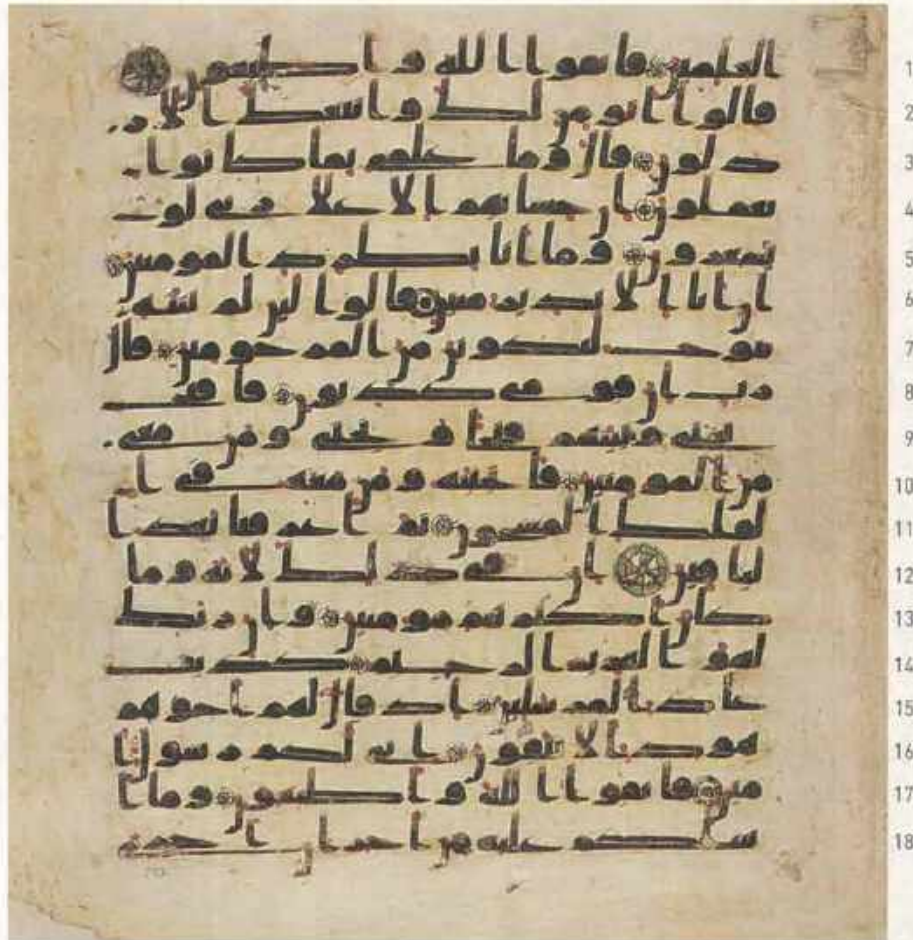 العلمين فاتقوا الله واطيعون 1
قالوا انومن لك واتبعك الار 2
ذلون قال وما علمي بما كانوا 3
يعملون ان حسابهم الا على ربي لو 4
تشعرون وما انا بطرد المومنين 5
ان انا الا نذير مبين قالوا لين لم تنته 6
ينوح لتكونن من المرجومين قال 7
رب ان قومي كذبون فافتح 8
بيني وبينهم فتحا ونجني ومن معي 9
من المومنين فانجينه ومن معه في ا 10
لفلك المشحون ثم اغرقنا بعد ا 11
لباقين ان في ذلك لاية وما 12
كان اكثرهم مومنين وان ربك 13
لهو العزيز الرحيم كذبت 14
عاد المرسلين اذ قال لهم اخوهم 15
هود الا تتقون اني لكم رسول ا 16
مين فاتقوا الله واطيعون وما ا 17
سلكم عليه من اجر ان اجري 18